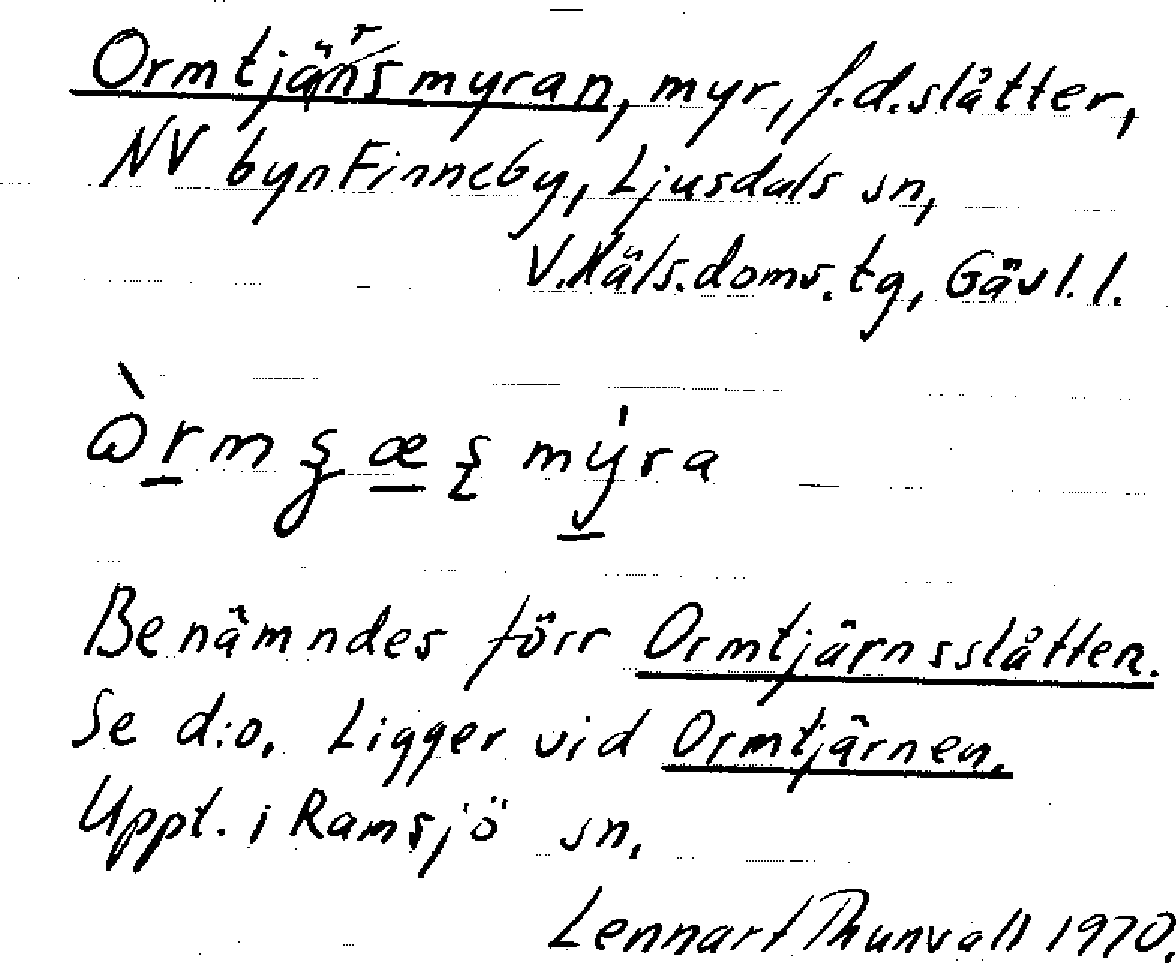 Ormtjärnsmyran, myr, f.d. slåtter,
NV byn Finneby, Ljusdals sn,
V. Häls. doms. tg, Gävl. l.
Benämndes förr Ormtjärnsslåtten.
Se d:o. Ligger vid Ormtjärnen.
Uppt. i Ramsjö sn.
Lennart Thunvall 1970.